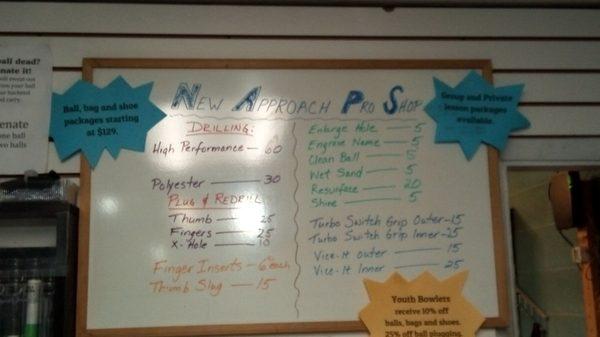 ball dead?
nate it!
Ball, bag and shoe
packages starting
at $129.
enate
New Approach Pro Shop
Group and Private
lesson packages
available.
Drilling:
High Performance - 60
Polyester - 30
Plug & Redrill
Thumb - 25
Fingers - 25
X-Hole - 10
Finger Inserts - 6 each
Thumb Slug - 15
Enlarge Hole - 5
Engrave Name - 5
Clean Ball - 5
Wet Sand - 5
Resurface - 20
Shine - 5
Turbo Switch Grip Outer - 15
Turbo Switch Grip Inner - 25
Vice-It outer - 15
Vice-It Inner - 25
Youth Bowlers
receive 10% off
balls, bags and shoes.
25% off ball plugging,